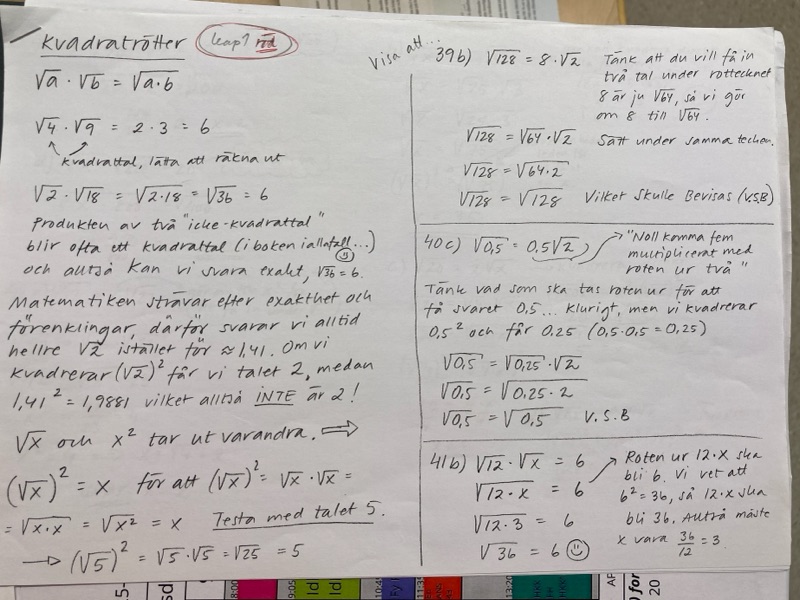 Kvadratrötter
(kap 1 röd)
√a · √b = √a·b
√4 · √9 = 2 · 3 = 6
kvadrattal, lätta att räkna ut
√2 · √18 = √2·18 = √36 = 6
Produkten av två "icke-kvadrattal"
blir ofta ett kvadrattal (i boken iallafall...)
och alltså kan vi svara exakt, √36 = 6.
Matematiken strävar efter exakthet och
förenklingar, därför svarar vi alltid
hellre √2 istället för ≈ 1,41. Om vi
kvadrerar (√2)² får vi talet 2, medan
1,41² = 1,9881 vilket alltså INTE är 2!
√x och x² tar ut varandra. ⇒
(√x)² = x för att (√x)² = √x · √x =
= √x·x = √x² = x Testa med talet 5.
→ (√5)² = √5 · √5 = √25 = 5
Visa att...
39b) √128 = 8·√2
Tänk att du vill få in
två tal under rottecknet
8 är ju √64, så vi gör
om 8 till √64.
√128 = √64 · √2 Sätt under samma tecken.
√128 = √64·2
√128 = √128 Vilket Skulle Bevisas (V.S.B)
40c) √0,5 = 0,5√2
"Noll komma fem
multiplicerat med
roten ur två"
Tänk vad som ska tas roten ur för att
få svaret 0,5... Klurigt, men vi kvadrerar
0,5² och får 0.25 (0,5·0,5 = 0,25)
√0,5 = √0,25 · √2
√0,5 = √0,25·2
√0,5 = √0,5 V.S.B
41b) √12 · √x = 6
√12·x = 6
√12·3 = 6
√36 = 6
Roten ur 12·x ska
bli 6. Vi vet att
6² = 36, så 12·x ska
bli 36. Alltså måste
x vara 36/12 = 3
8:00
9:05
10:45
11:3
13:20
20